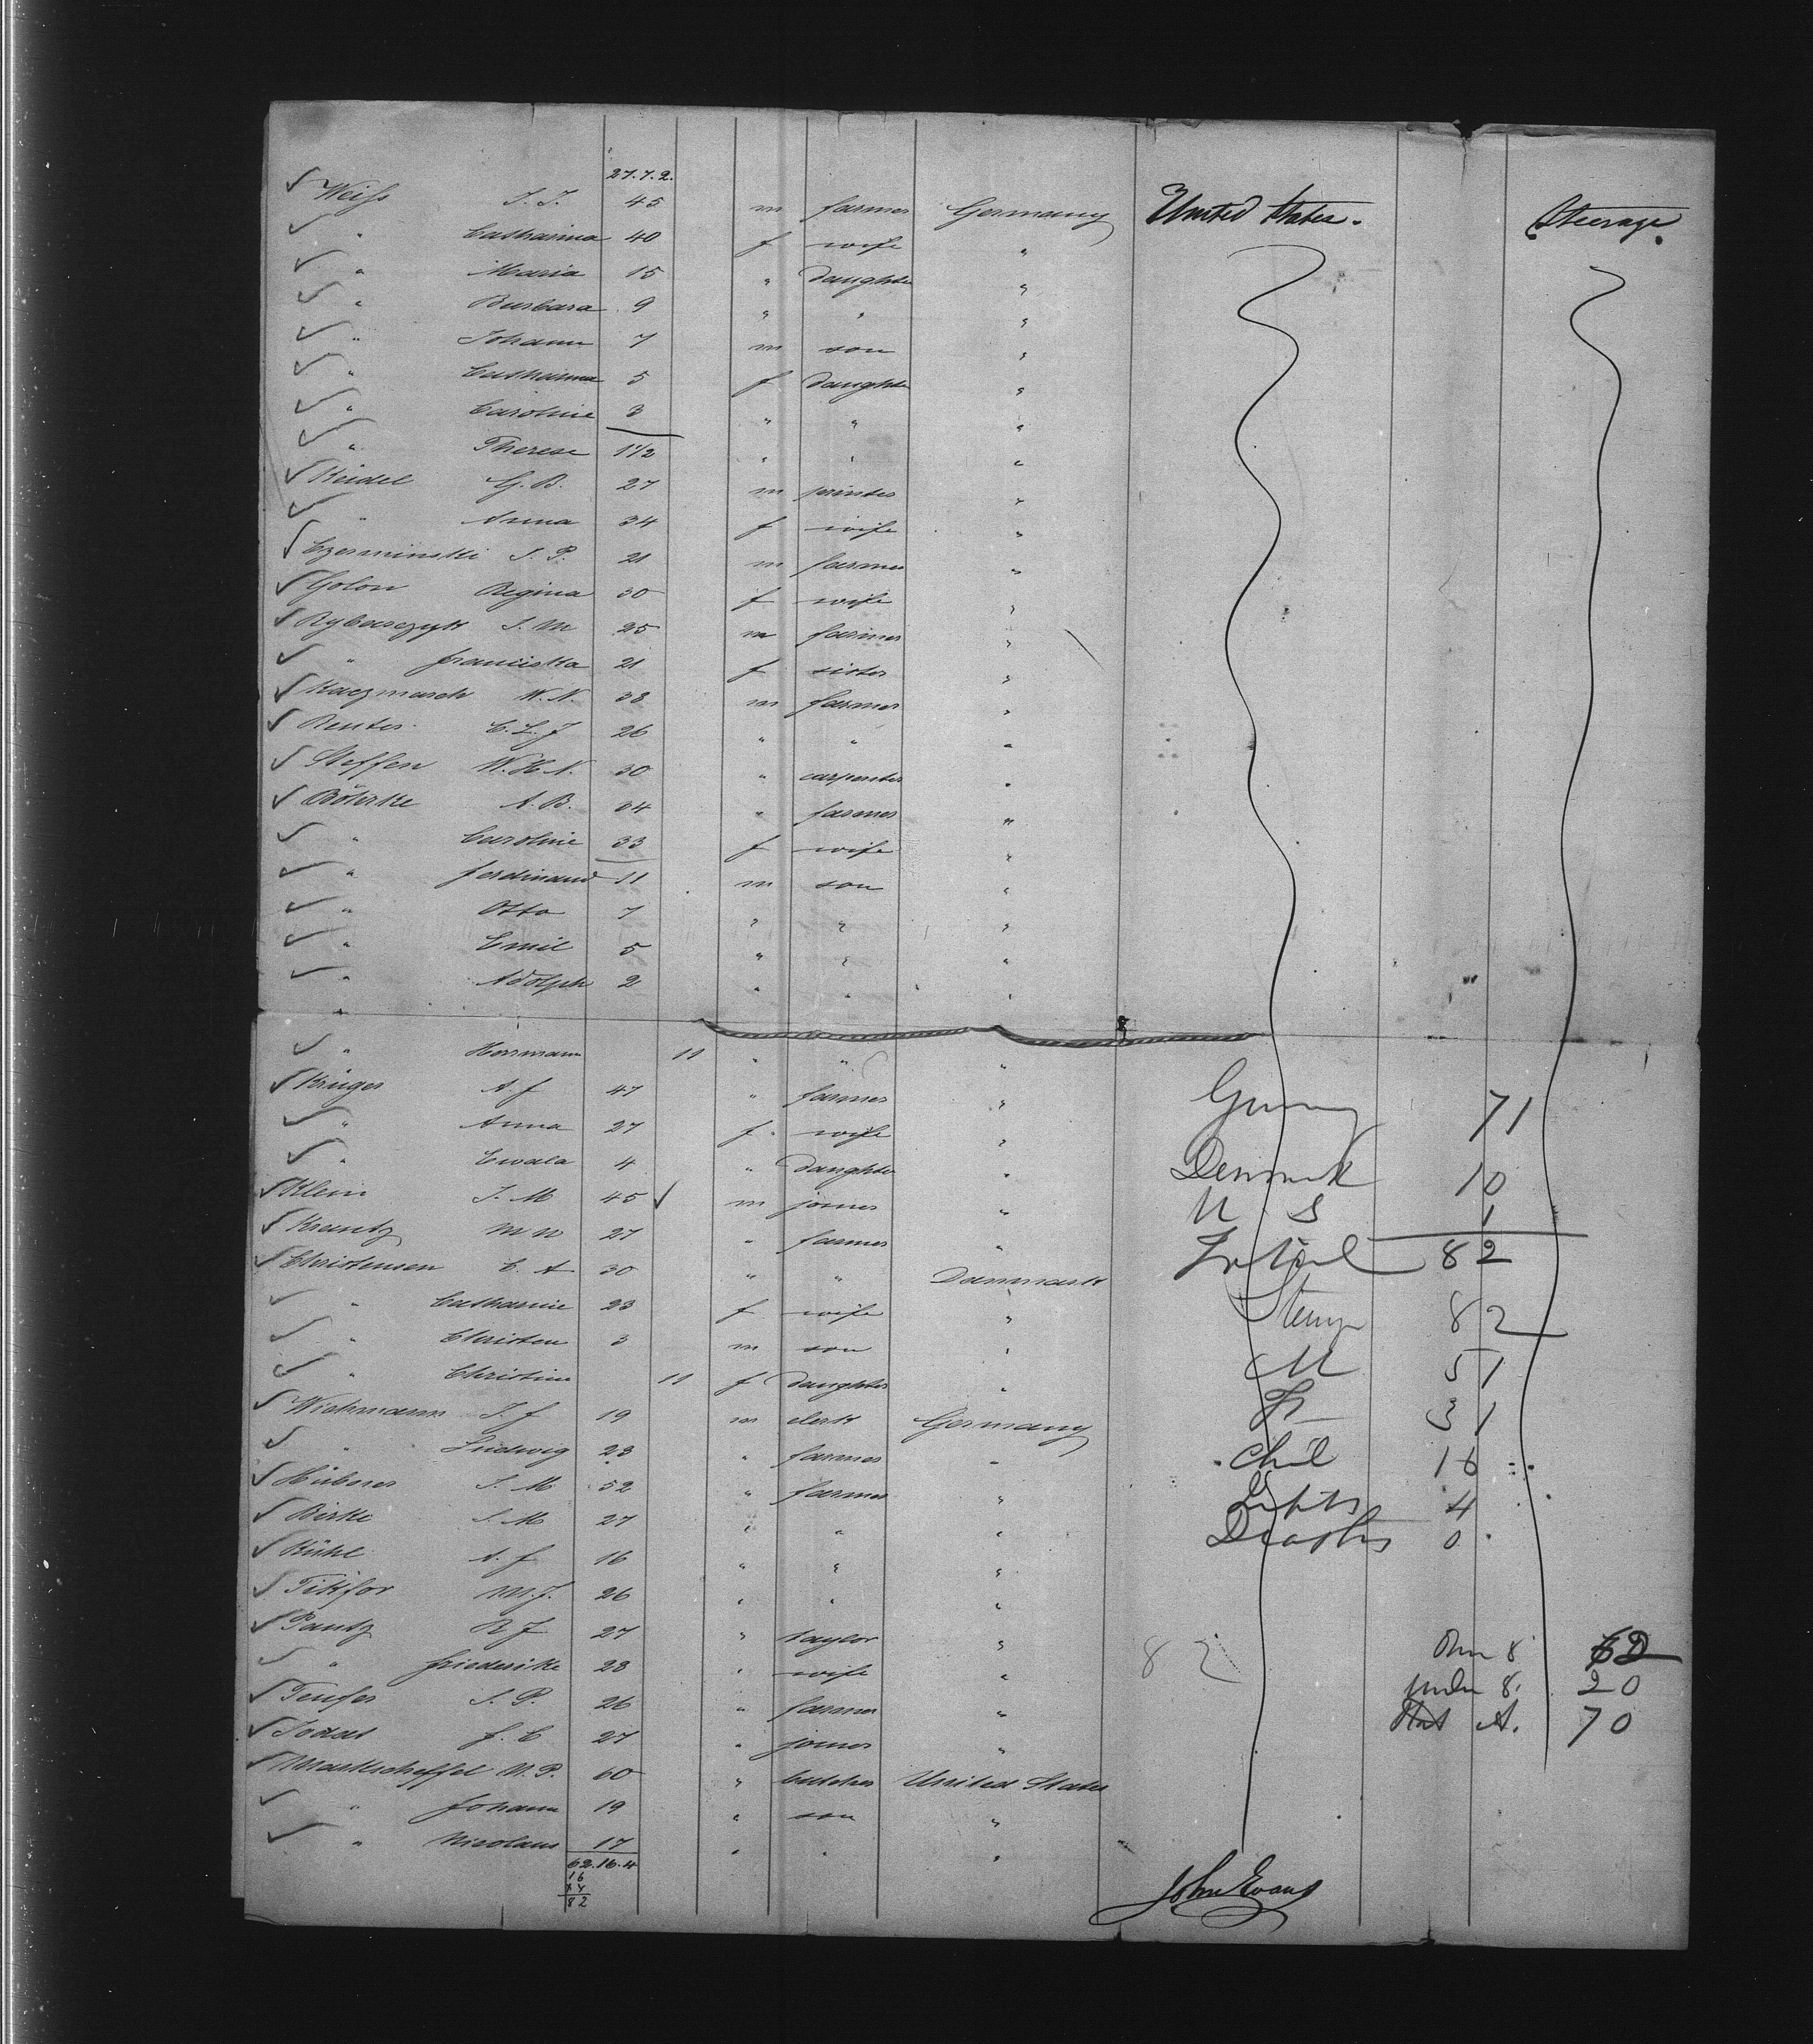 27.7.2.
Weiss J. J. 45 m farmer Germany United States. Steerage.
" Catharina 40 f wife "
" Maria 15 " daughter "
" Barbara 9 " " "
" Johann 7 m son "
" Catharina 5 f daughter "
" Caroline 3 " " "
" Therese 1 1/2 " " "
Keidel G. B. 27 m printer "
" Anna 34 f wife "
Czerminski J. P. 21 m farmer "
Golon Regina 30 f wife "
Rybarczyk J. M 25 m farmer "
" Franciska 21 f sister "
Kaczmarek W. N. 38 m farmer "
Reuter C. L. J 26 " " "
Steffen W. H. N. 30 " carpenter "
Böhrke A. B. 34 " farmer "
" Caroline 33 f wife "
" Ferdinand 11 m son "
" Otto 7 " " "
" Emil 5 " " "
" Adolph 2 " " "
" Herrmann 11 " " "
Krüger A. f 47 " farmer " Germany 71
" Anna 27 f. wife "
" Ewala 4 " daughter " Denmark 10
Klein J. M 45 m joiner " U S 1
Krantz M N 27 " farmer " Total 82
Christensen C. A 30 " " Danmark
" Catharine 23 f wife " Steerage 82
" Christen 3 m son " M 51
" Christine 11 f daughter " F 31
Wichmann J. f 19 m clerk Germany
" Ludwig 23 " farmer " Chil 16
Hübner J. M 52 " farmer " Infts 4
Birke J. M 27 " " " Deaths 0
Kühl A. f 16 " " "
Tikfor M. J. 26 " " "
Pantz R J 27 " taylor " 82 Over 8 62
" Friederike 28 " wife " under 8. 20
Teufer J. P. 26 " farmer " Stat A. 70
Jodat f. C 27 " joiner "
Markscheffel M. P. 60 " butcher United States
" Johann 19 " son "
" Nicolaus 17 " " "
62.16.4
16
4
82
John Evans